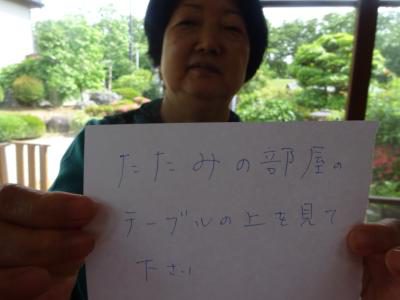 たたみの部屋の
テーブルの上を見て
下さい